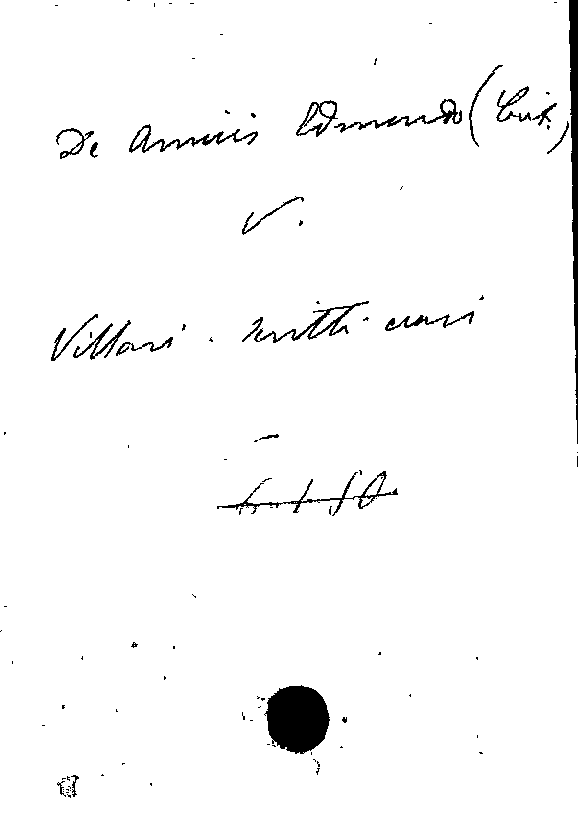 De Amicis Edmondo (Crit.)
V.
Villari. Scritti vari